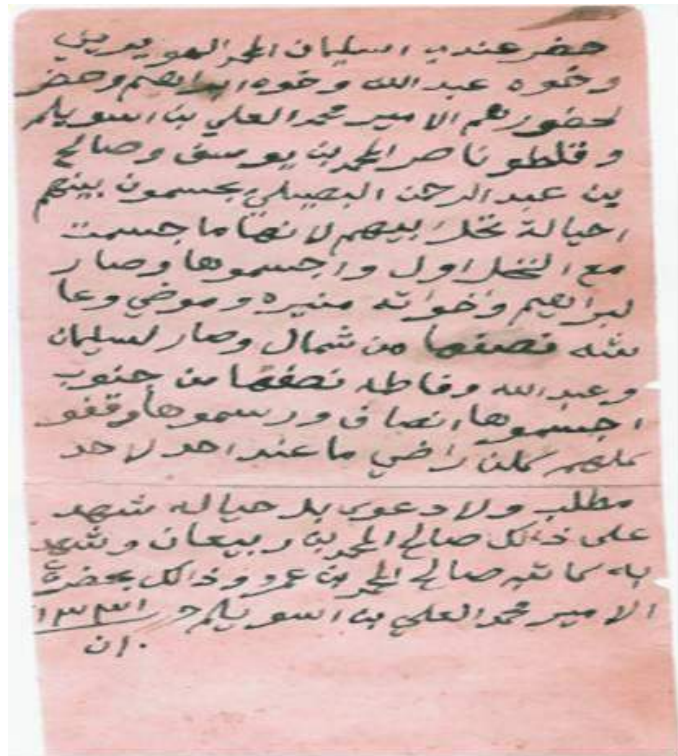 حضر عندي اسليمان المحمد الهويريني
وخوه عبدالله وخوه ابراهيم وحضر
لحضورهم الامير محمد العلي بن اسويلم
وقلطو ناصر المحمد بن يوسف وصالح
بن عبدالرحمن البصيلي يجسمون بينهم
احيالة نخل ابيهم لانها ما جسمت
مع النخل اول واجسموها وصار
لبراهيم وخواته منيره وموضي وعا
يشه نصفها من شمال وصار لسليمان
وعبدالله وفاطه نصفها من جنوب
اجسموها انصاف ورسموها وقفو
كلهم كلن راضي ما عند احد لاحد
مطلب ولا دعوى بلحياله شهد
على ذالك صالح المحمد بن ربيعان وشهد
به كاتبه صالح المحمد بن عمرو وذالك بحضرت
الامير محمد العلي بن اسويلم ١٣٣١
ن